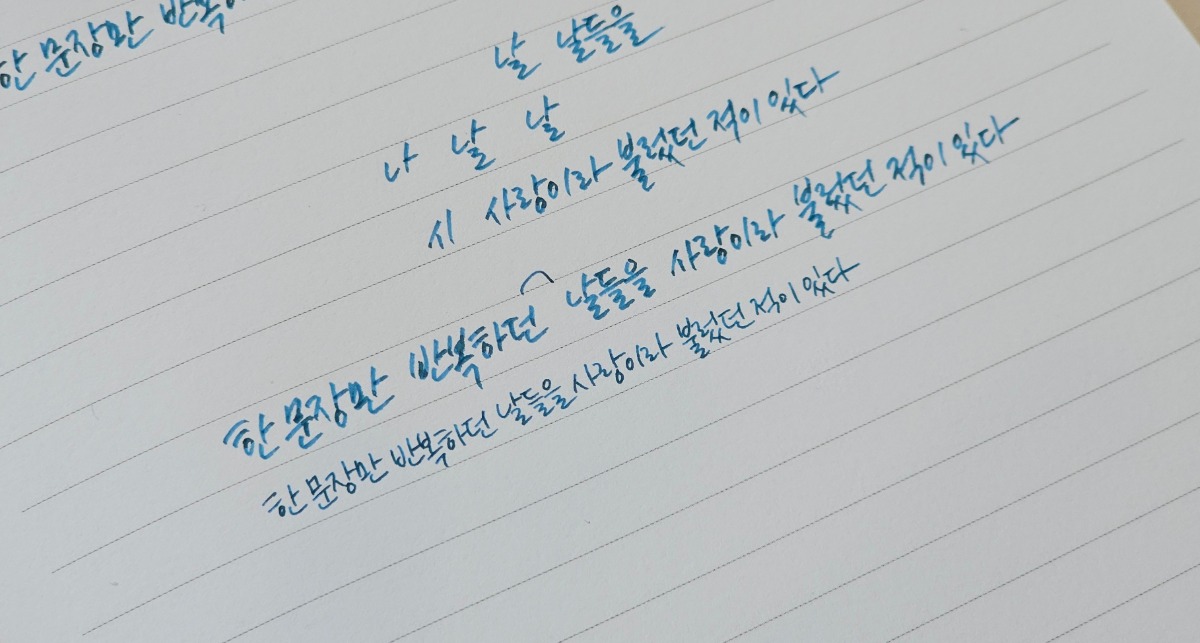 한 문장만 반복하
날 날들을
나 날 날
시 사랑이라 불렀던 적이 있다
한 문장만 반복하던 날들을 사랑이라 불렀던 적이 있다
한 문장만 반복하던 날들을 사랑이라 불렀던 적이 있다